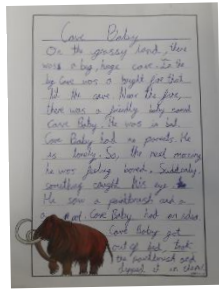 Cave Baby
On the grassy land, there
was a big, huge cave. In the
big Cave was a bright fire that
lit the cave. Near the fire,
there was a friendly baby named
Cave Baby. He was in bed.
Cave Baby had no parents. He
is lonely. So, the next morning
he was feeling bored. Suddenly,
something caught his eye.
He saw a paintbrush and a
a pot. Cave Baby had an idea.
Cave Baby got
out of bed, took
the paintbrush and
dipped it in